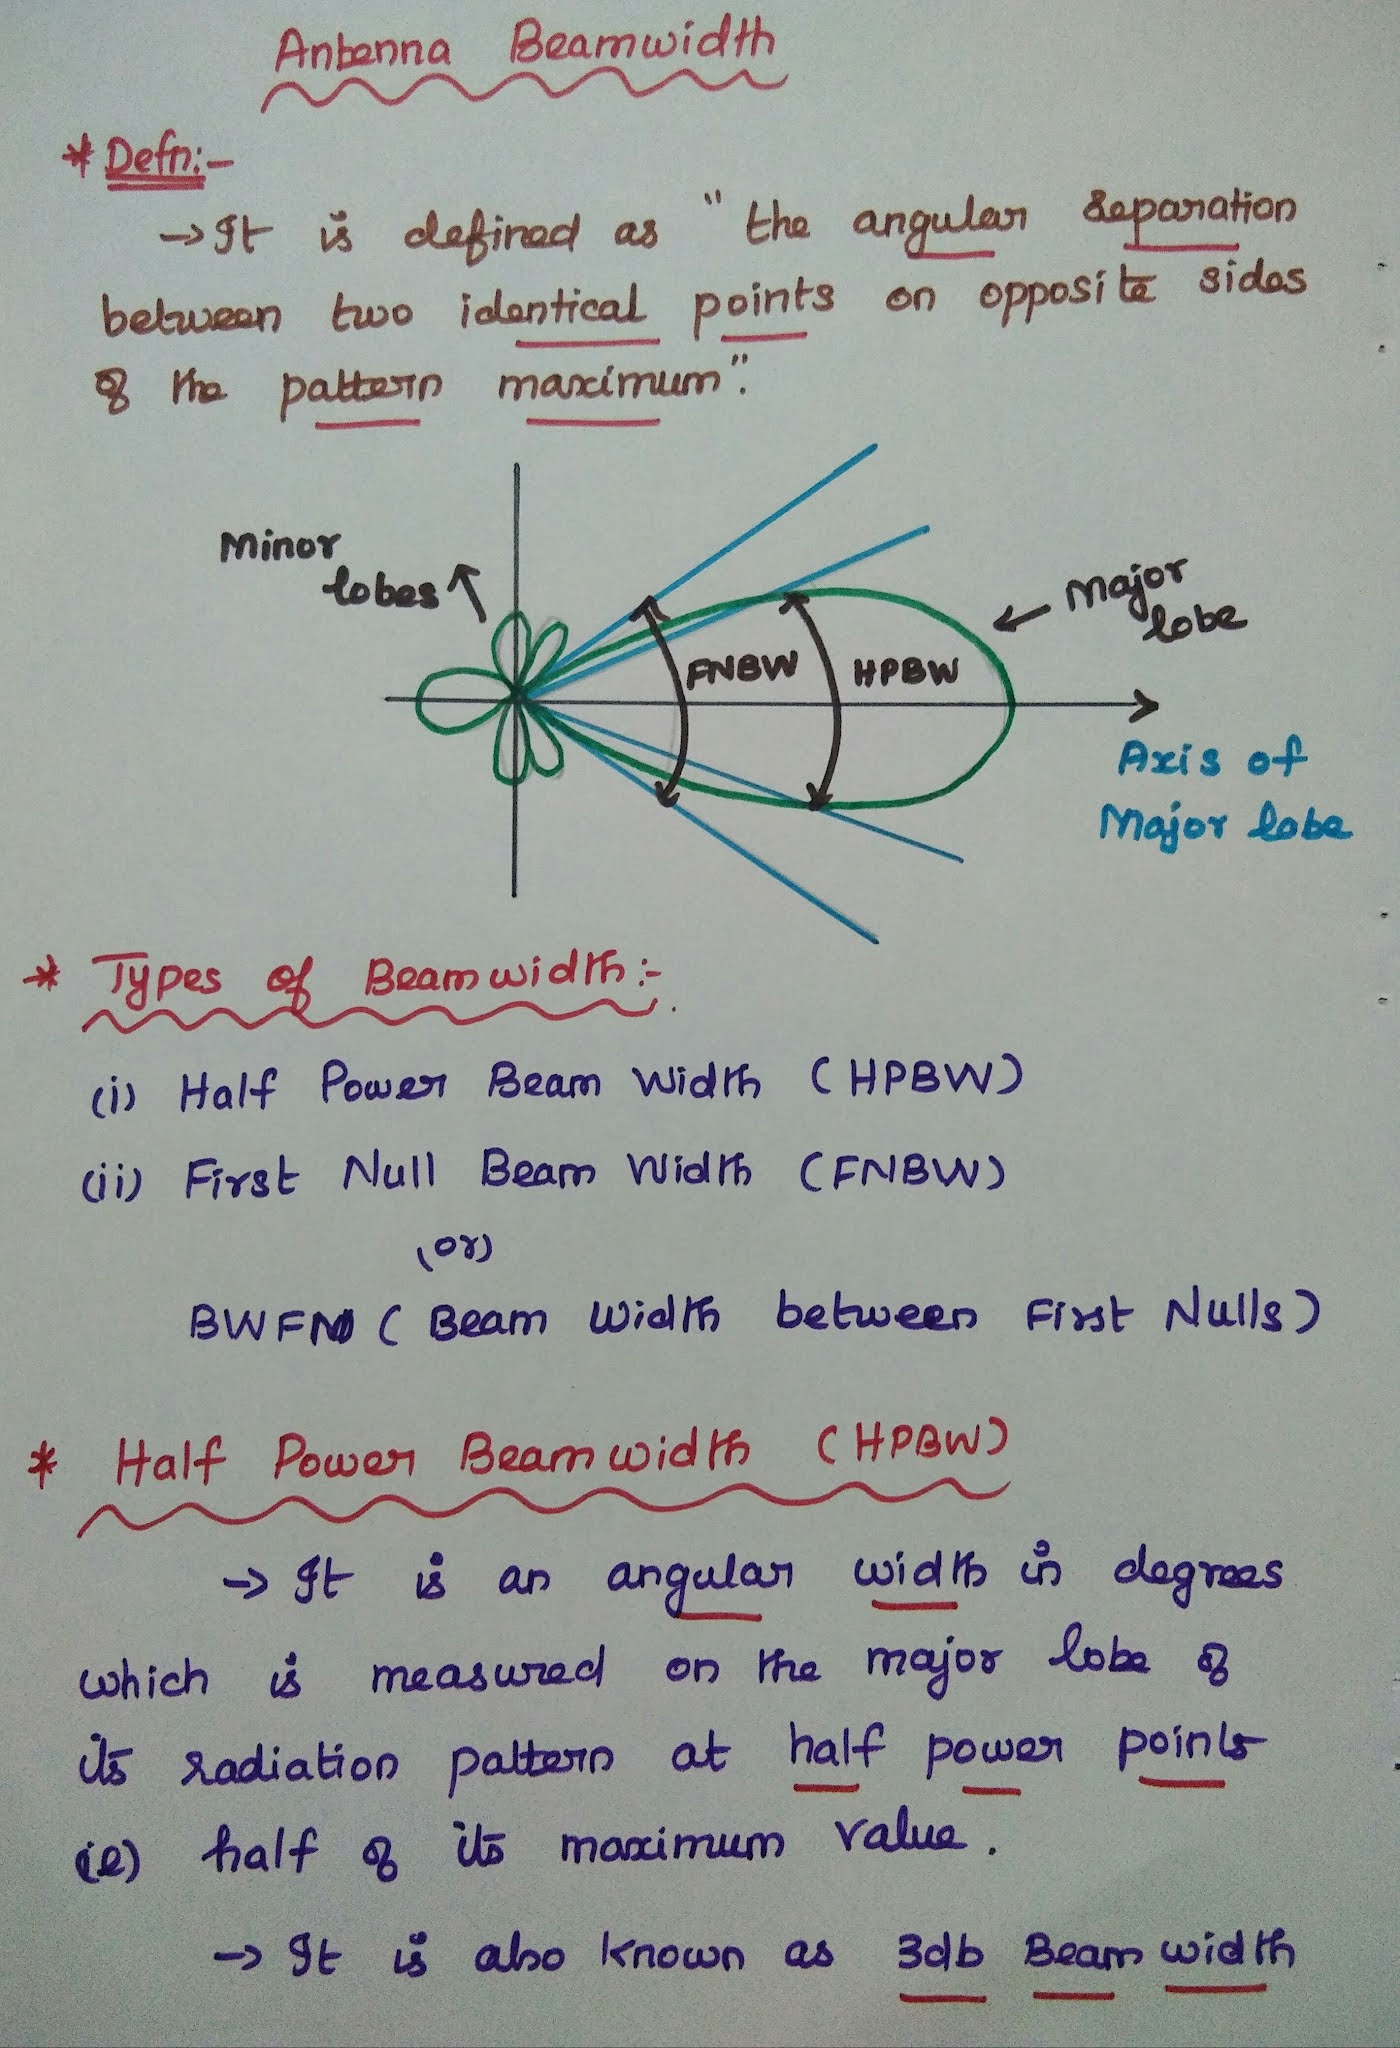 Antenna Beamwidth
* Defn:-
→ It is defined as "the angular separation
between two identical points on opposite sides
of the pattern maximum".
Minor
lobes
Major
lobe
FNBW
HPBW
Axis of
Major lobe
* Types of Beamwidth:-
(i) Half Power Beam Width (HPBW)
(ii) First Null Beam Width (FNBW)
(or)
BWFN (Beam Width between First Nulls)
* Half Power Beamwidth (HPBW)
→ It is an angular width in degrees
which is measured on the major lobe of
its radiation pattern at half power points
(ie) half of its maximum value.
→ It is also known as 3db Beam width